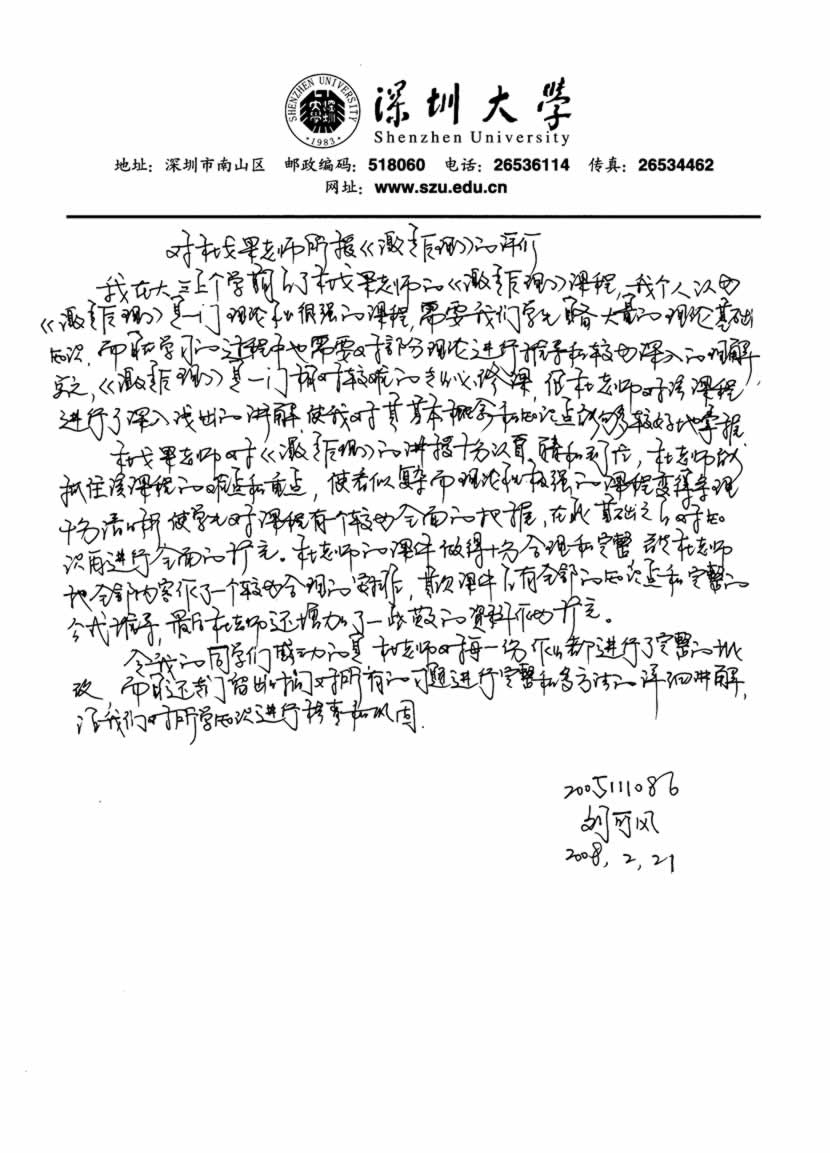 SHENZHEN UNIVERSITY
深圳大学
·1983·
深圳大学
Shenzhen University
地址：深圳市南山区 邮政编码：518060 电话：26536114 传真：26534462
网址：www.szu.edu.cn
对杜戈果老师所授《激光原理》的评价
我在大三上个学期上了杜戈果老师的《激光原理》课程，我个人认为
《激光原理》是一门理论性很强的课程，需要我们学生具备大量的理论基础
知识，而且学习的过程中也需要对部分理论进行推导和较为深入的理解
总之，《激光原理》是一门相对较难的专业必修课，但杜老师对该课程
进行了深入浅出的讲解，使我对其基本概念和知识点能够较好地掌握
杜戈果老师对《激光原理》的讲授十分认真、精和到位，杜老师能
抓住该课程的难点和重点，使看似复杂而理论性极强的课程变得条理
十分清晰，使学生对课程有个较为全面的把握，在此基础之上对知
识再进行全面的扩充。杜老师的课件做得十分合理和完整，首先杜老师
把全部内容作了一个较为合理的安排，其次课件上有全部的知识点和完整的
公式推导，最后杜老师还增加了一些英文的资料作为扩充。
令我的同学们感动的是杜老师对每一份作业都进行了完整的批
改，而且还专门留出时间对所有的习题进行完整和多方法的详细讲解，
让我们对所学知识进行检查和巩固.
2005111086
刘可风
2008, 2, 21